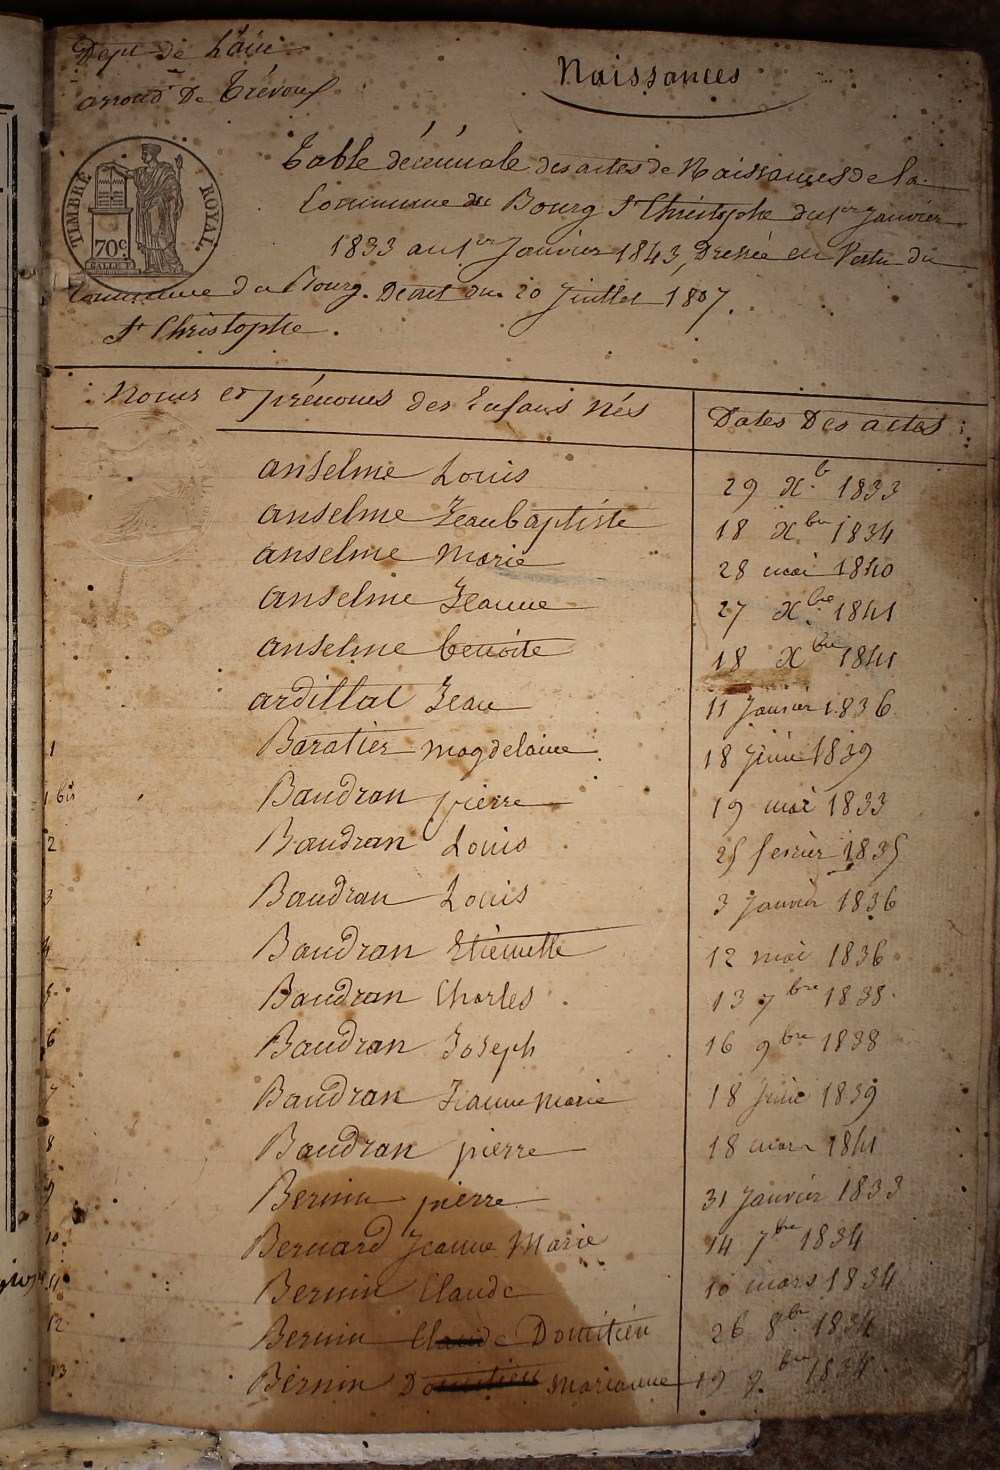 Dépt de L'ain
arrond De Trévoux
Naissances
TIMBRE ROYAL.
70c.
Table décennale des actes de Naissances de la
Commune de Bourg St Christophe du 1er Janvier
1833 au 1er Janvier 1843, Dressée en Vertu du
Commune du Bourg. Décret du 20 Juillet 1807.
St Christophe.
Noms et prénoms des Enfans Nés
Dates Des actes
anselme Louis 29 Xb 1833
anselme Jeanbaptiste 18 Xbre 1834
anselme Marie 28 mai 1840
anselme Jeanne 27 Xbre 1841
anselme benoite 18 Xbre 1841
ardillat Jean 11 Janvier 1836
1 Baratier magdelaine 18 juin 1839
1 bis Baudran pierre 19 mai 1833
2 Baudran Louis 25 fevrier 1835
3 Baudran Louis 3 Janvier 1836
4 Baudran Etiennette 12 mai 1836
5 Baudran Charles 13 7bre 1838
6 Baudran Joseph 16 9bre 1838
7 Baudran Jeanne Marie 18 Juin 1839
8 Baudran pierre 18 mars 1841
9 Bernin pierre 31 Janvier 1833
10 Bernard Jeanne Marie 14 7bre 1834
11 Bernin Claude 10 mars 1834
12 Bernin Claude Domitien 26 8bre 1834
13 Bernin Domitien Marianne 19 9bre 1834